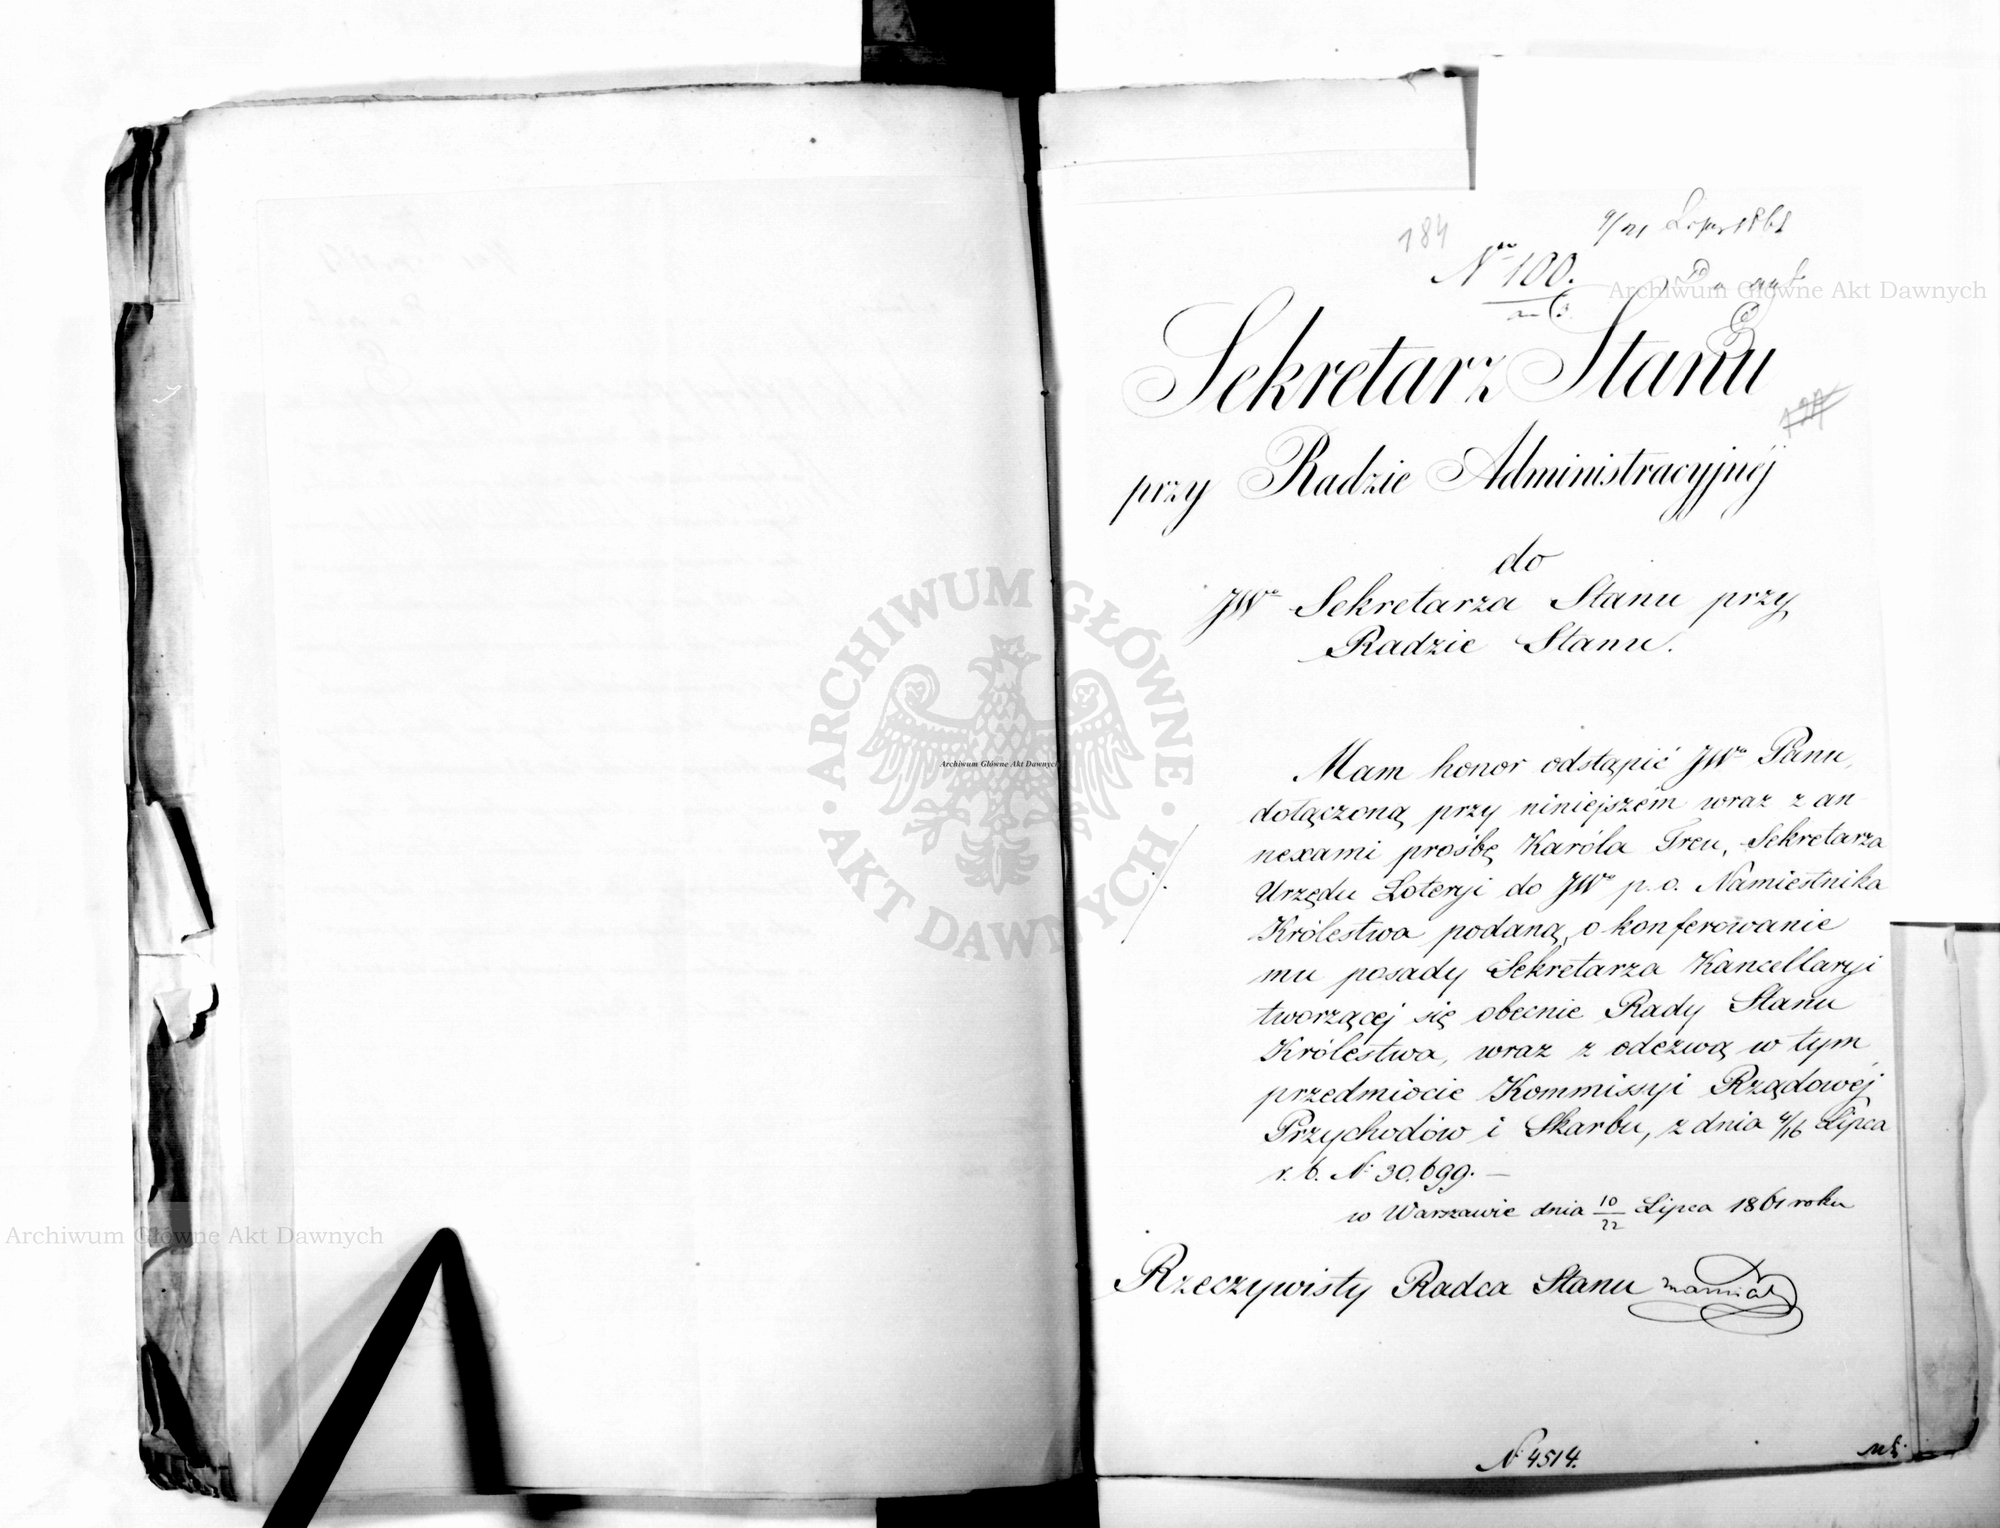 184
9/21 Lipca 1861
Nro 100.
Archiwum Główne Akt Dawnych
Sekretarz Stanu
przy Radzie Administracyjnéj
do
JWo Sekretarza Stanu przy
Radzie Stanu.
Mam honor odstąpić JWu Panu,
dołączoną przy niniejszém wraz z an-
nexami prośbę Karóla Treu, Sekretarza
Urzędu Loteryi do JWo p. o. Namiestnika
Królestwa podaną, o konferowanie
mu posady Sekretarza Kancellaryi
tworzącej się obecnie Rady Stanu
Królestwa, wraz z odezwą w tym
przedmiocie Kommissyi Rządowéj
Przychodów i Skarbu, z dnia 4/16 Lipca
r. b. N: 30,699. —
w Warszawie dnia 10/22 Lipca 1861 roku
Rzeczywisty Radca Stanu
N: 4514.
ARCHIWUM GŁÓWNE AKT DAWNYCH
Archiwum Główne Akt Dawnych
Archiwum Główne Akt Dawnych